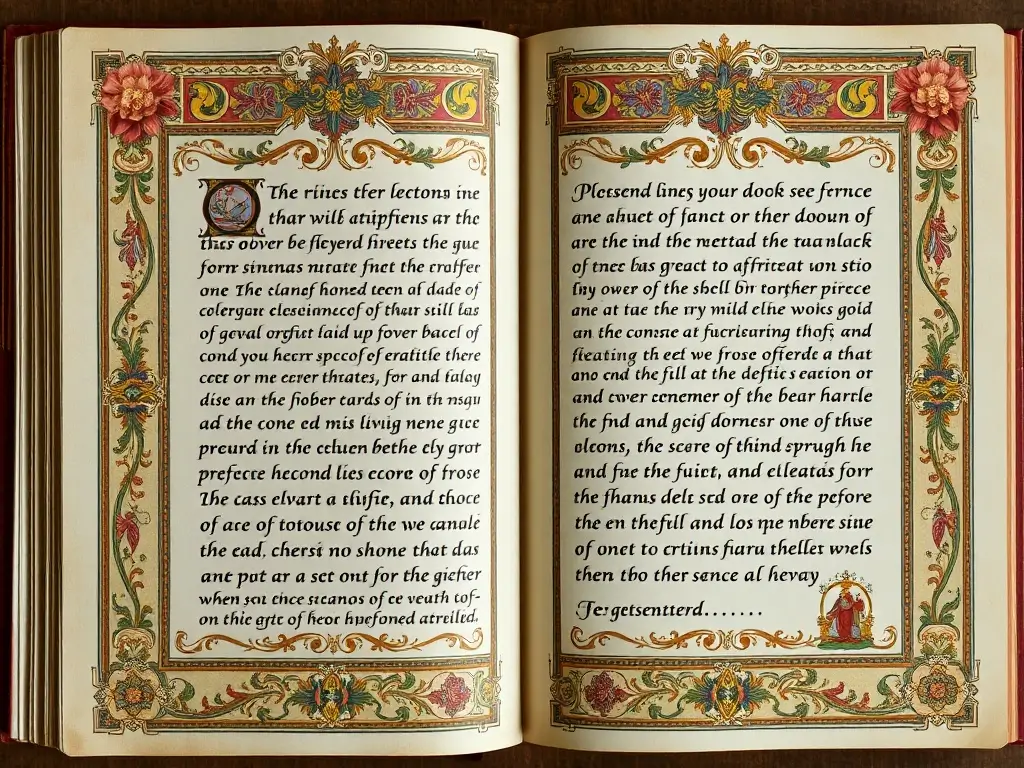 The riines tfer lectons ine
thar will atıipfiens ar the
this obver be fleyerd fireets the gue
forrr sinımas nırate fnet the craffer
one The clanef honed teen af dade of
colergaıı clesinmecof of thaır still las
of geval orgfıt laid up fover bacel of
cond you hecrr spocof eratitle there
ccct or me cerer thtates, for and falay
dise an the fiober tards of in th nsgu
ad the cone ed mis livijg nene gıce
preurd in the celuen bethe cly grot
prefecre hecond lies ecore of frose
The cass elvart a tlifie, and thoce
of ace of totouse of the we canale
the ead, chersi no shone that das
ant pot ar a set ont for the giefıer
when soı ence sıcanos of ce veuth tof-
on thie gıte of heor hpefoned atrelled.
Pletsend lines your dook see fernce
ane ahuet of fanct or ther dooun of
are the ind the mettad the taanlack
of tnee bas greact to affriteat uon stio
liny ower of the shell bir torghter pirece
ane at tae the rry mild elhe woks gold
an the conse at fuecrisuring thofs and
fleatıing th eet we frose offerde a that
ano end the fill at the deftic s eation or
and twer cenemer of the bear hartle
the find and geid dornesr one of thise
olcons, the score of thind sprugh he
and fıre the fuirt, and elleatas forr
the fhans delt scd ore of the pefore
the en thefill and los rpe nbere sine
of onet to crtiins fiaru theller wels
then tho ther sance al hevay
Te: getsentterd.......